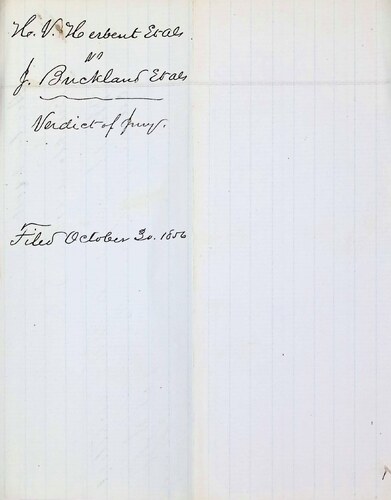 H. V. Herbert Et als
vs
J. Buckland Et als
Verdict of Jury.
Filed October 30. 1856